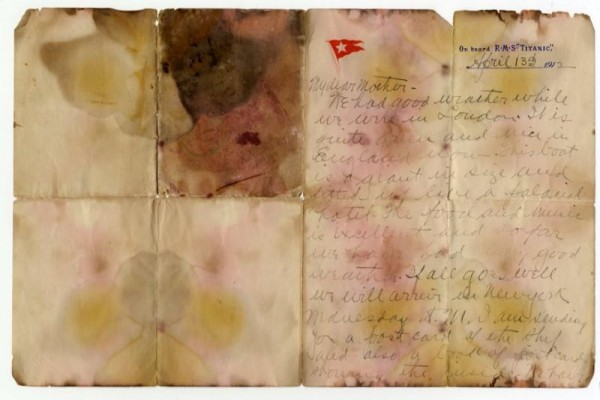 On board R.M.S. "TITANIC".
April 13th 1912
My dear Mother-
We had good weather while
we were in London. It is
quite green and nice in
England now. This boat
is a giant in size and
fitted up like a palacial
hotel. The food and music
is excellent and so far
we have had good
weather. If all goes well
we will arrive in New York
Wednesday A.M. I am sending
you a postcard of the ship
and also a book of postcards
showing the inside